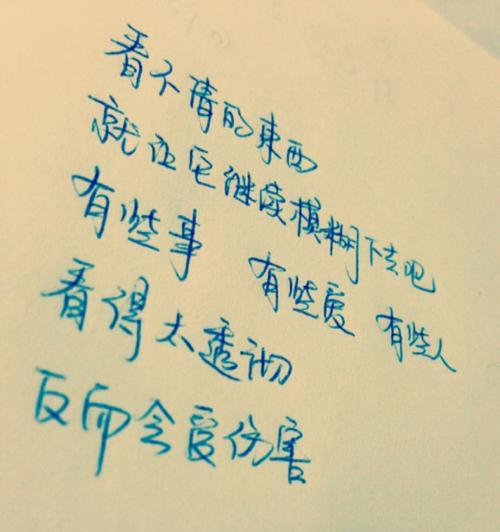 看不清的東西
就让它继续模糊下去吧
有些事 有些爱 有些人
看得太透彻
反而会受伤害